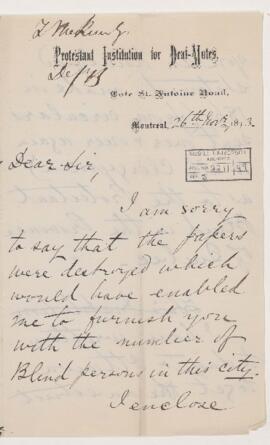 Protestant Institution for Deaf-Mutes,
Cote St. Antoine Road,
Montreal, 26th Novr 1873
Dear Sir,
I am sorry
to say that the papers
were destroyed which
would have enabled
me to furnish you
with the number of
Blind persons in this city.
I enclose